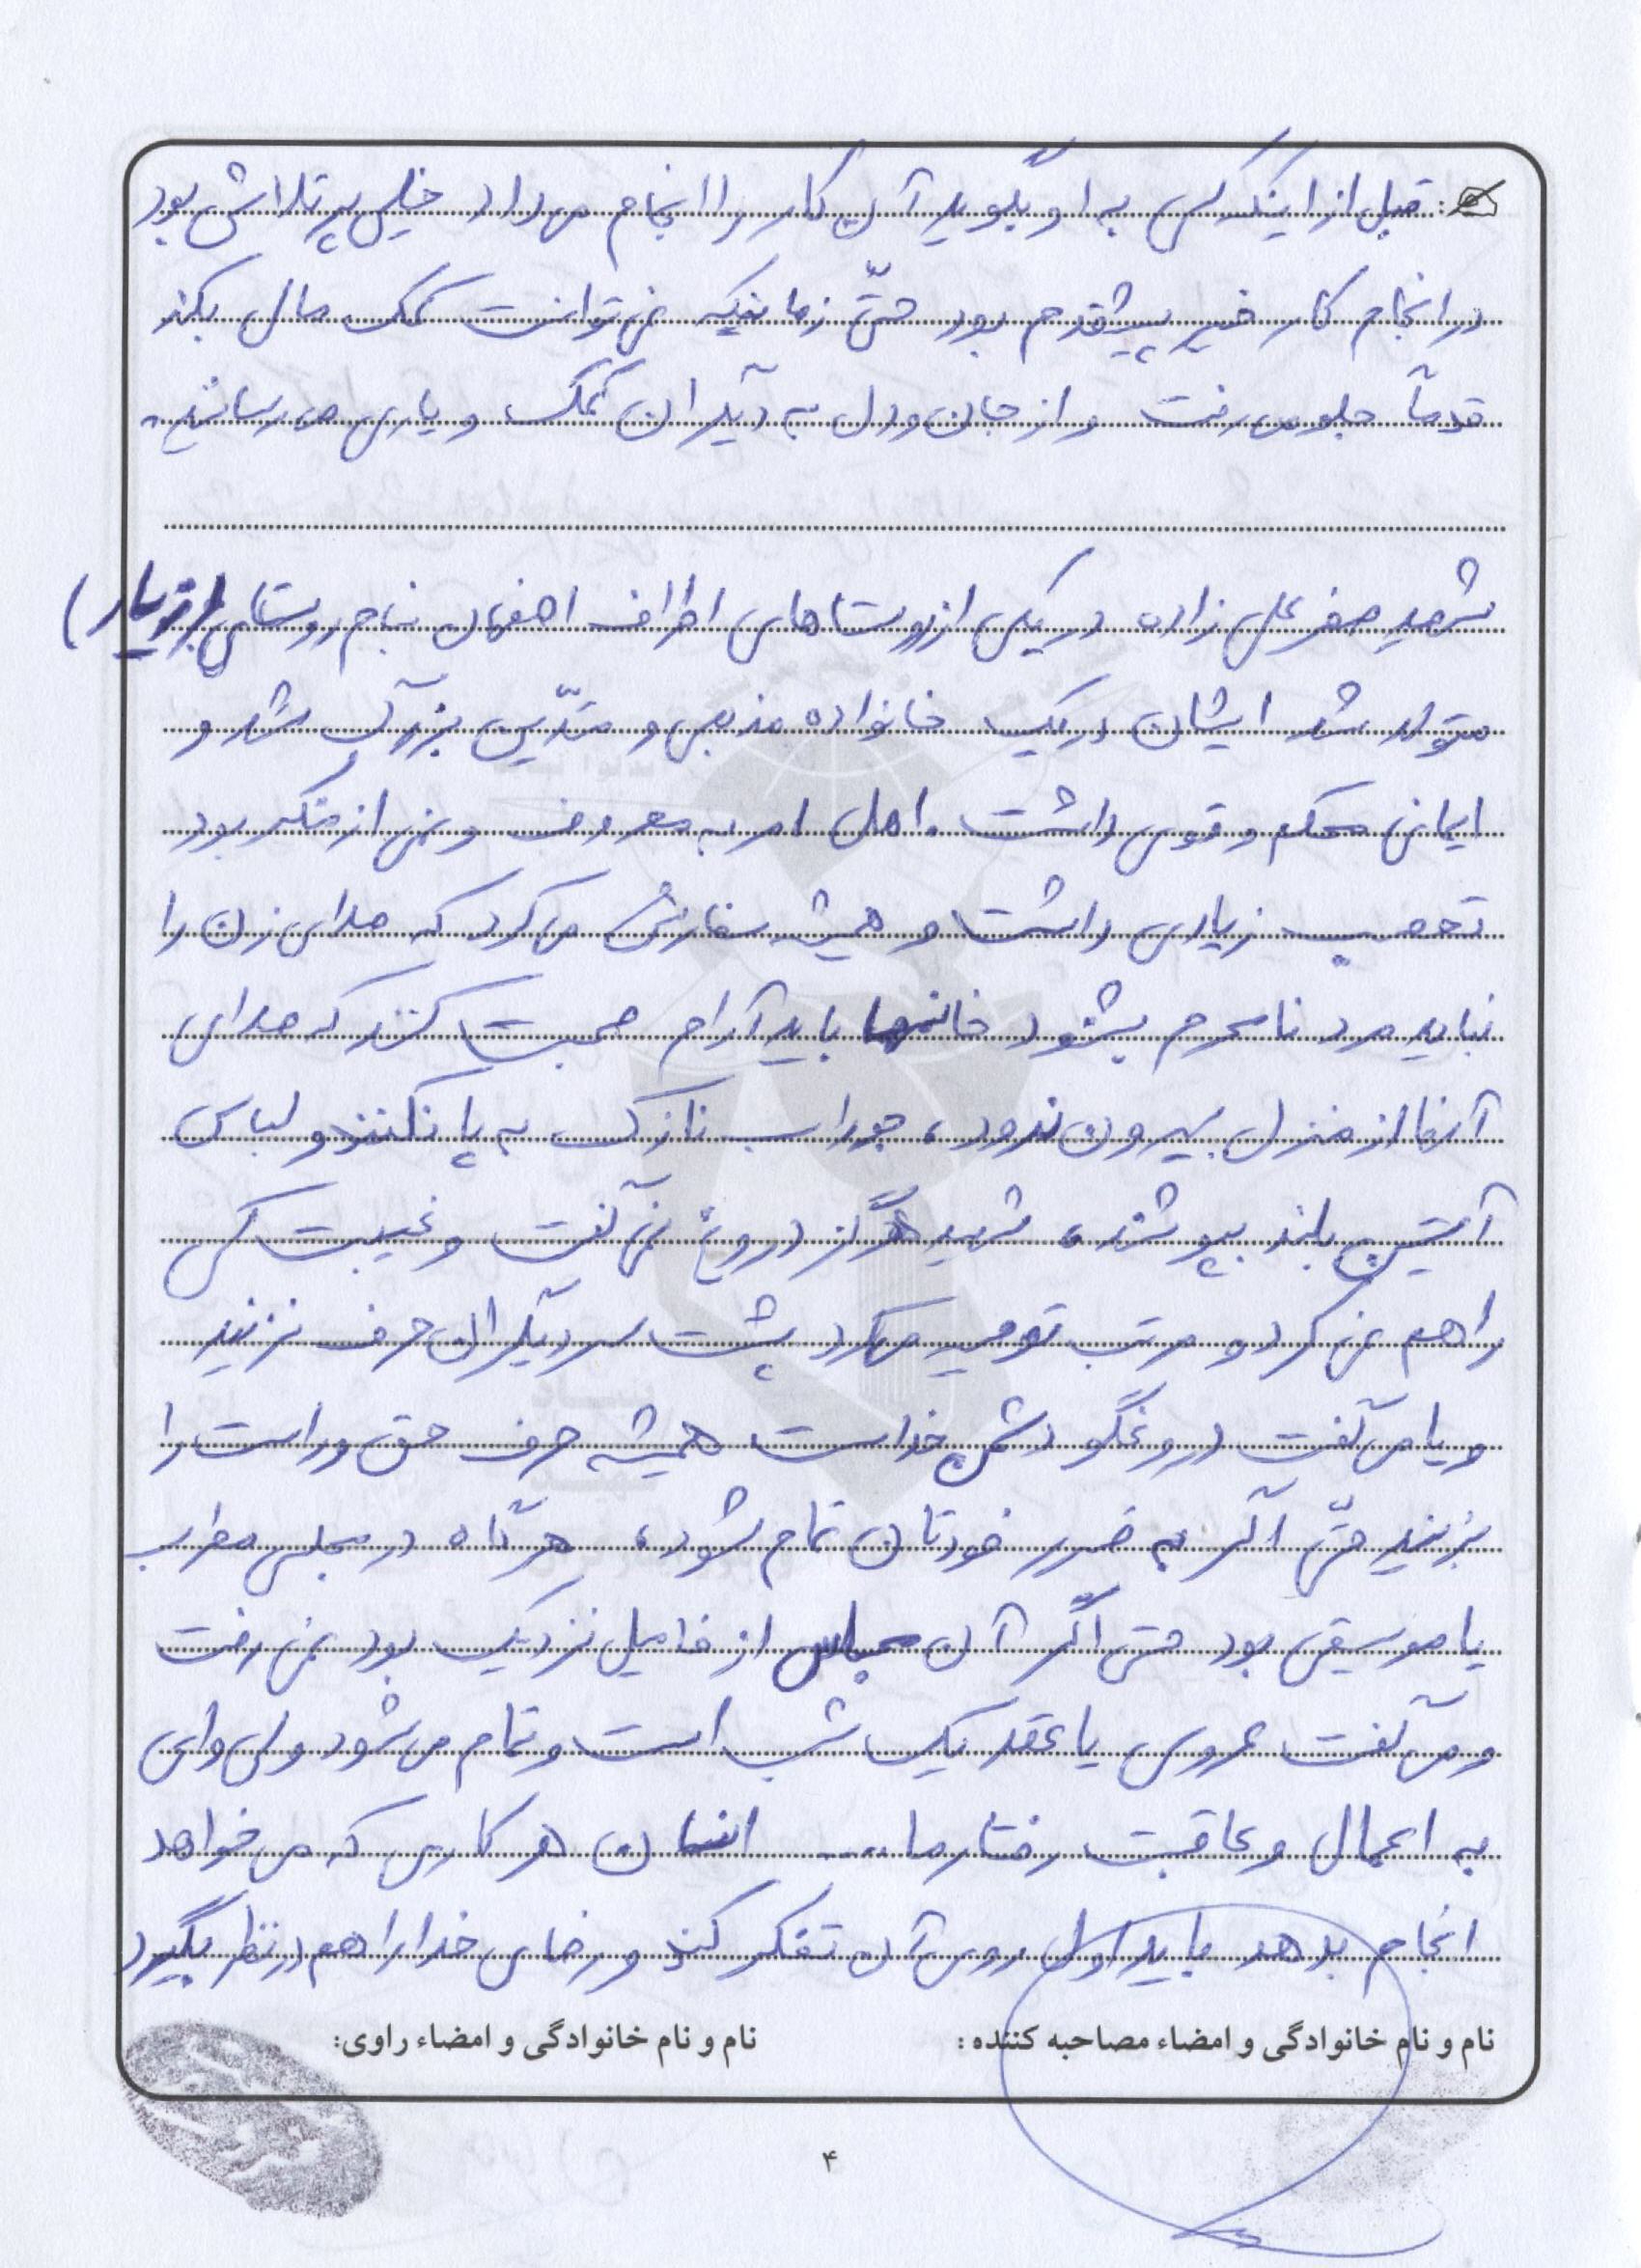 قبل از اینکه کسی به او بگوید آن کار را انجام می داد خیلی پر تلاش بود
در انجام کار خیر پیشقدم بود حتّی زمانیکه نمی توانست کمک مالی بکند
قدماً جلو می رفت و از جان و دل به دیگران کمک و یاری می رسانید.
شهید صفرعلی زاده در یکی از روستاهای اطراف اصفهان بنام روستای (زیار)
متولد شد ایشان در یک خانواده مذهبی و متدّین بزرگ شد و
ایمانی محکم و قوی داشت. اهل امر به معروف و نهی از منکر بود
تعصب زیادی داشت و همیشه سفارش می کرد که صدای زن را
نباید مرد نامحرم بشنود خانمها باید آرام صحبت کنند که صدای
آنها از منزل بیرون نرود، جوراب نازک به پا نکنند و لباس
آستین بلند بپوشند، شهید هرگز دروغ نمی گفت و غیبت کسی
را هم نمی کرد و مرتب توصیه میکرد پشت سر دیگران حرف نزنید
و یا می گفت دروغگو دشمن خداست همیشه حرف حق و راست را
بزنید حتّی اگر به ضرر خودتان تمام شود، هرگاه در مجلسی مطرب
یا موسیقی بود حتی اگر آن مجلس از فامیل نزدیک بود نمی رفت
و می گفت عروسی یا عقد یک شب است و تمام می شود ولی وای
به اعمال و عاقبت رفتار ما... انسان هر کاری که می خواهد
انجام بدهد باید اول روی آن تفکر کند و رضای خدا را هم در نظر بگیرد
نام و نام خانوادگی و امضاء مصاحبه کننده: نام و نام خانوادگی و امضاء راوی:
۴